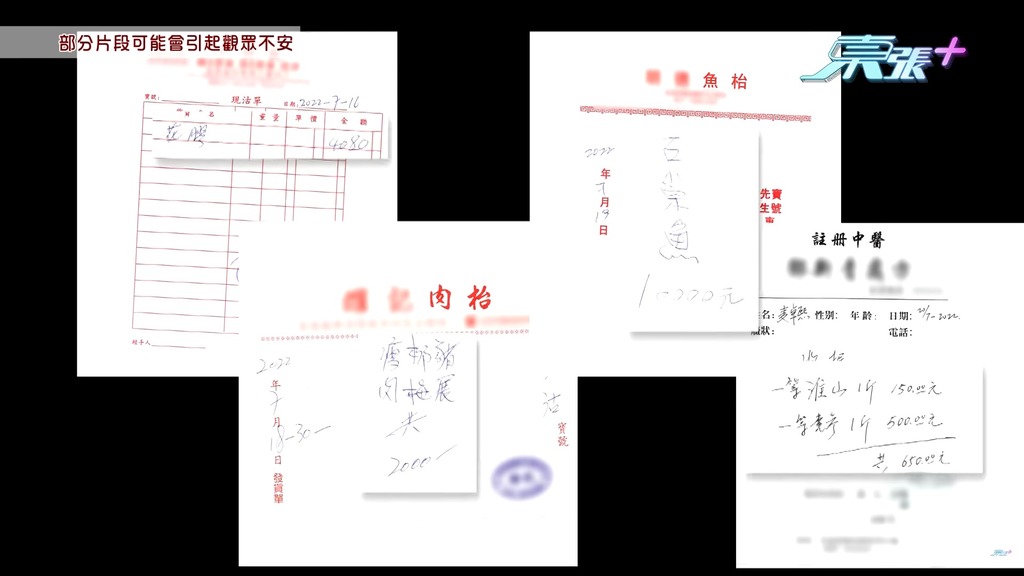 部分片段可能會引起觀眾不安
東張+
寶號:
現沽單
日期: 2022-7-16
貨名 重量 單價 金額
花膠 4080
經手人
魚枱
2022年7月19日
寶號
先生
石崇魚
10200元
記肉枱
2022年7月18-30日
發貨單
瘦柳豬
肉梅展
共
2000
沽寶號
註冊中醫
姓名: 性別: 年齡: 日期: 20/7-2022
電話:
一等淮山 1斤 150.00元
1斤 500.00元
共, 650.00元
東張+